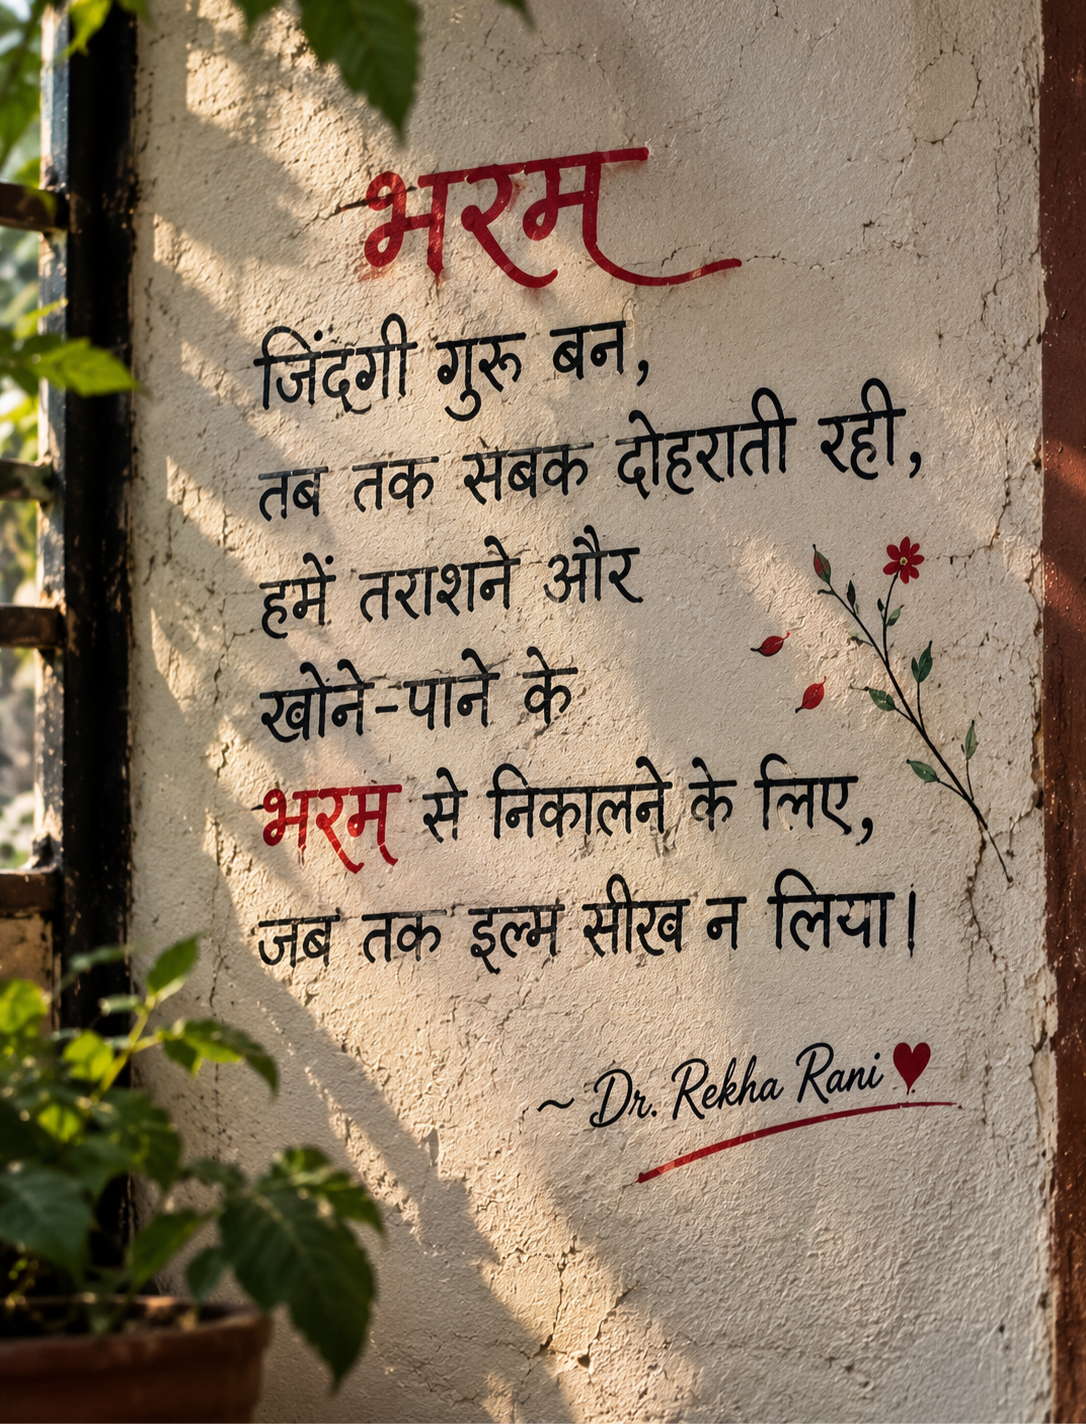 भरम
जिंदगी गुरु बन,
तब तक सबक दोहराती रही,
हमें तराशने और
खोने-पाने के
भरम से निकालने के लिए,
जब तक इल्म सीख न लिया।
~ Dr. Rekha Rani